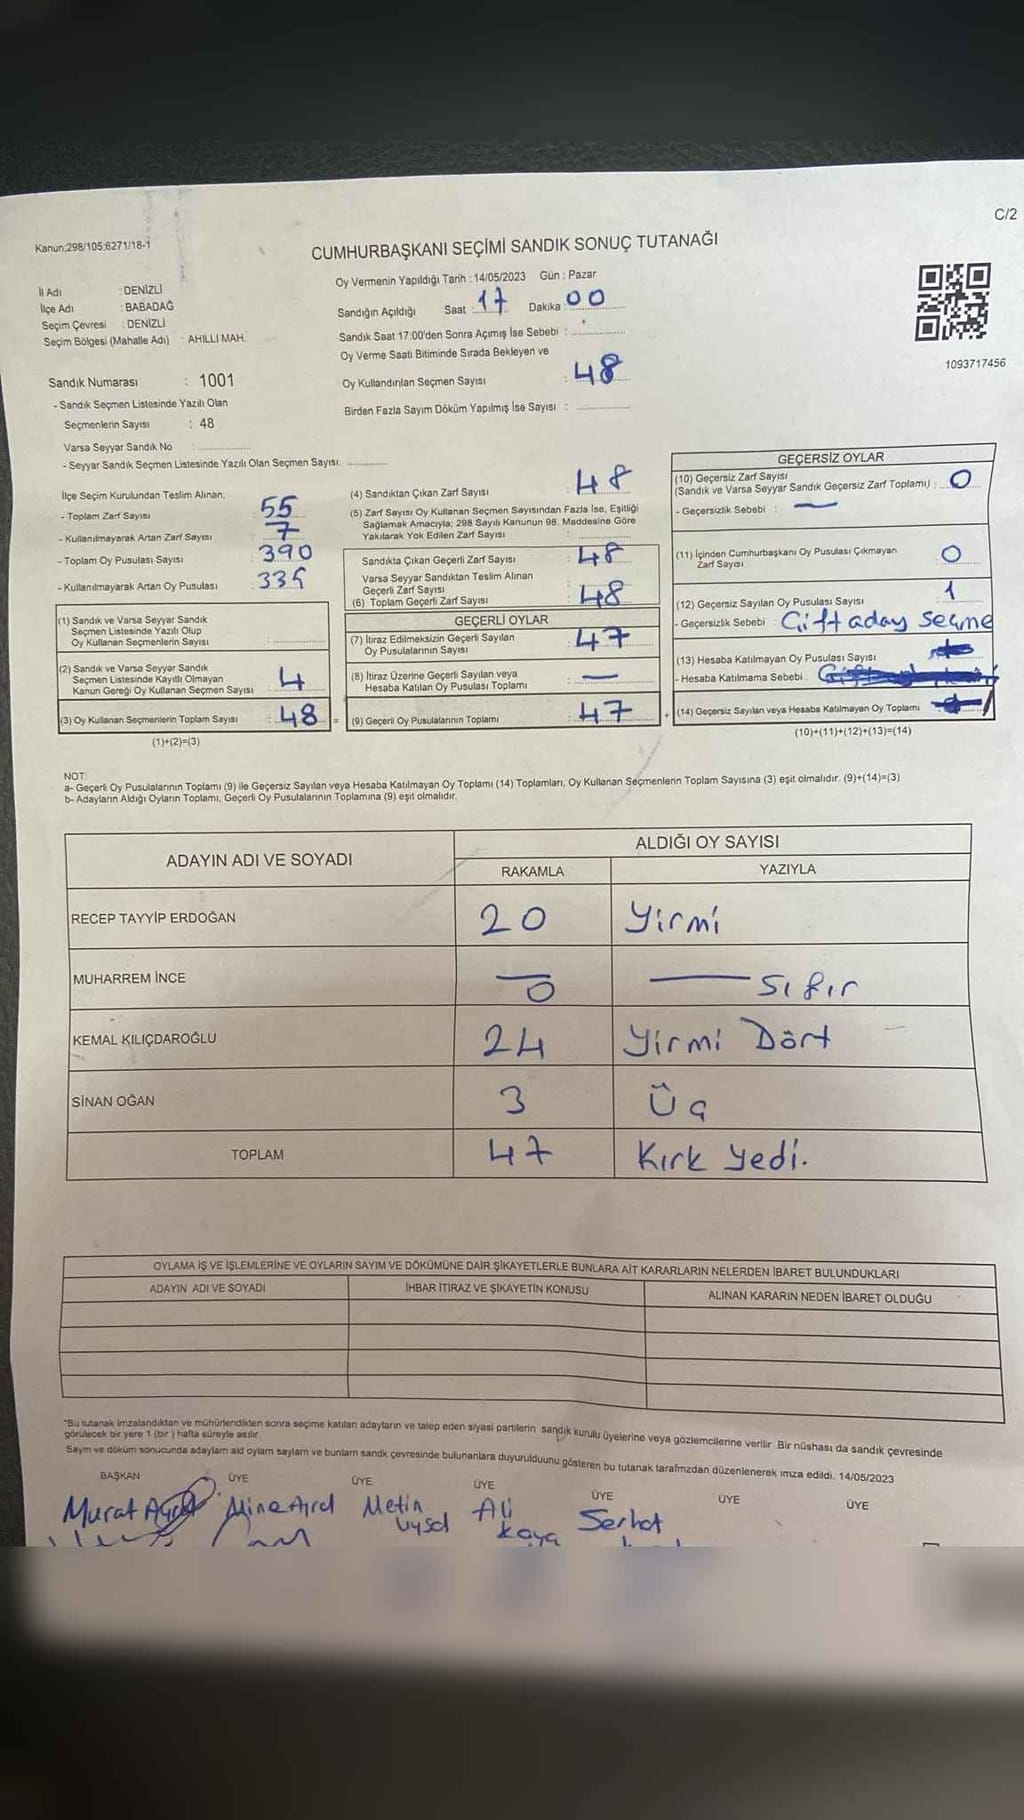 C/2
Kanun:298/105:6271/18-1
CUMHURBAŞKANI SEÇİMİ SANDIK SONUÇ TUTANAĞI
Oy Vermenin Yapıldığı Tarih : 14/05/2023 Gün : Pazar
İl Adı : DENİZLİ
İlçe Adı : BABADAĞ
Seçim Çevresi : DENİZLİ
Seçim Bölgesi (Mahalle Adı) : AHILLI MAH.
Sandığın Açıldığı Saat : 17 Dakika : 00
Sandık Saat 17:00'den Sonra Açımış İse Sebebi :
Oy Verme Saati Bitiminde Sırada Bekleyen ve
Oy Kullandırılan Seçmen Sayısı : 48
Birden Fazla Sayım Döküm Yapılmış İse Sayısı :
1093717456
Sandık Numarası : 1001
- Sandık Seçmen Listesinde Yazılı Olan
Seçmenlerin Sayısı : 48
Varsa Seyyar Sandık No
- Seyyar Sandık Seçmen Listesinde Yazılı Olan Seçmen Sayısı:
İlçe Seçim Kurulundan Teslim Alınan;
- Toplam Zarf Sayısı 55
- Kullanılmayarak Artan Zarf Sayısı 7
- Toplam Oy Pusulası Sayısı 390
- Kullanılmayarak Artan Oy Pusulası
(1) Sandık ve Varsa Seyyar Sandık
Seçmen Listesinde Yazılı Olup
Oy Kullanan Seçmenlerin Sayısı
(2) Sandık ve Varsa Seyyar Sandık
Seçmen Listesinde Kayıtlı Olmayan
Kanun Gereği Oy Kullanan Seçmen Sayısı 4
(3) Oy Kullanan Seçmenlerin Toplam Sayısı : 48 =
(1)+(2)=(3)
(4) Sandıktan Çıkan Zarf Sayısı : 48
(5) Zarf Sayısı Oy Kullanan Seçmen Sayısından Fazla İse, Eşitliği
Sağlamak Amacıyla; 298 Sayılı Kanunun 98. Maddesine Göre
Yakılarak Yok Edilen Zarf Sayısı :
Sandıkta Çıkan Geçerli Zarf Sayısı : 48
Varsa Seyyar Sandıktan Teslim Alınan
Geçerli Zarf Sayısı
(6) Toplam Geçerli Zarf Sayısı : 48
GEÇERLİ OYLAR
(7) İtiraz Edilmeksizin Geçerli Sayılan
Oy Pusulalarının Sayısı : 47
(8) İtiraz Üzerine Geçerli Sayılan veya
Hesaba Katılan Oy Pusulası Toplamı : —
(9) Geçerli Oy Pusulalarının Toplamı : 47 +
GEÇERSİZ OYLAR
(10) Geçersiz Zarf Sayısı
(Sandık ve Varsa Seyyar Sandık Geçersiz Zarf Toplamı) : 0
- Geçersizlik Sebebi : —
(11) İçinden Cumhurbaşkanı Oy Pusulası Çıkmayan
Zarf Sayısı 0
(12) Geçersiz Sayılan Oy Pusulası Sayısı 1
- Geçersizlik Sebebi : Çift aday seçme
(13) Hesaba Katılmayan Oy Pusulası Sayısı
- Hesaba Katılmama Sebebi :
(14) Geçersiz Sayılan veya Hesaba Katılmayan Oy Toplamı
(10)+(11)+(12)+(13)=(14)
NOT:
a- Geçerli Oy Pusulalarının Toplamı (9) ile Geçersiz Sayılan veya Hesaba Katılmayan Oy Toplamı (14) Toplamları, Oy Kullanan Seçmenlerin Toplam Sayısına (3) eşit olmalıdır. (9)+(14)=(3)
b- Adayların Aldığı Oyların Toplamı, Geçerli Oy Pusulalarının Toplamına (9) eşit olmalıdır.
ADAYIN ADI VE SOYADI ALDIĞI OY SAYISI
RAKAMLA YAZIYLA
RECEP TAYYİP ERDOĞAN 20 Yirmi
MUHARREM İNCE — 0 — Sıfır
KEMAL KILIÇDAROĞLU 24 Yirmi Dört
SİNAN OĞAN 3 Üç
TOPLAM 47 Kırk Yedi.
OYLAMA İŞ VE İŞLEMLERİNE VE OYLARIN SAYIM VE DÖKÜMÜNE DAİR ŞİKAYETLERLE BUNLARA AİT KARARLARIN NELERDEN İBARET BULUNDUKLARI
ADAYIN ADI VE SOYADI İHBAR İTİRAZ VE ŞİKAYETİN KONUSU ALINAN KARARIN NEDEN İBARET OLDUĞU
*Bu tutanak imzalandıktan ve mühürlendikten sonra seçime katılan adayların ve talep eden siyasi partilerin sandık kurulu üyelerine veya gözlemcilerine verilir. Bir nüshası da sandık çevresinde
görülecek bir yere 1 (bir ) hafta süreyle asılır.
Sayım ve döküm sonucunda adayların ald oyların sayların ve bunların sandk çevresinde bulunanlara duyurulduunu gösteren bu tutanak tarafmzdan düzenlenerek imza edildi. 14/05/2023
BAŞKAN ÜYE ÜYE ÜYE ÜYE ÜYE ÜYE
Murat Mine Metin Ali Serhat
Uysal Kaya